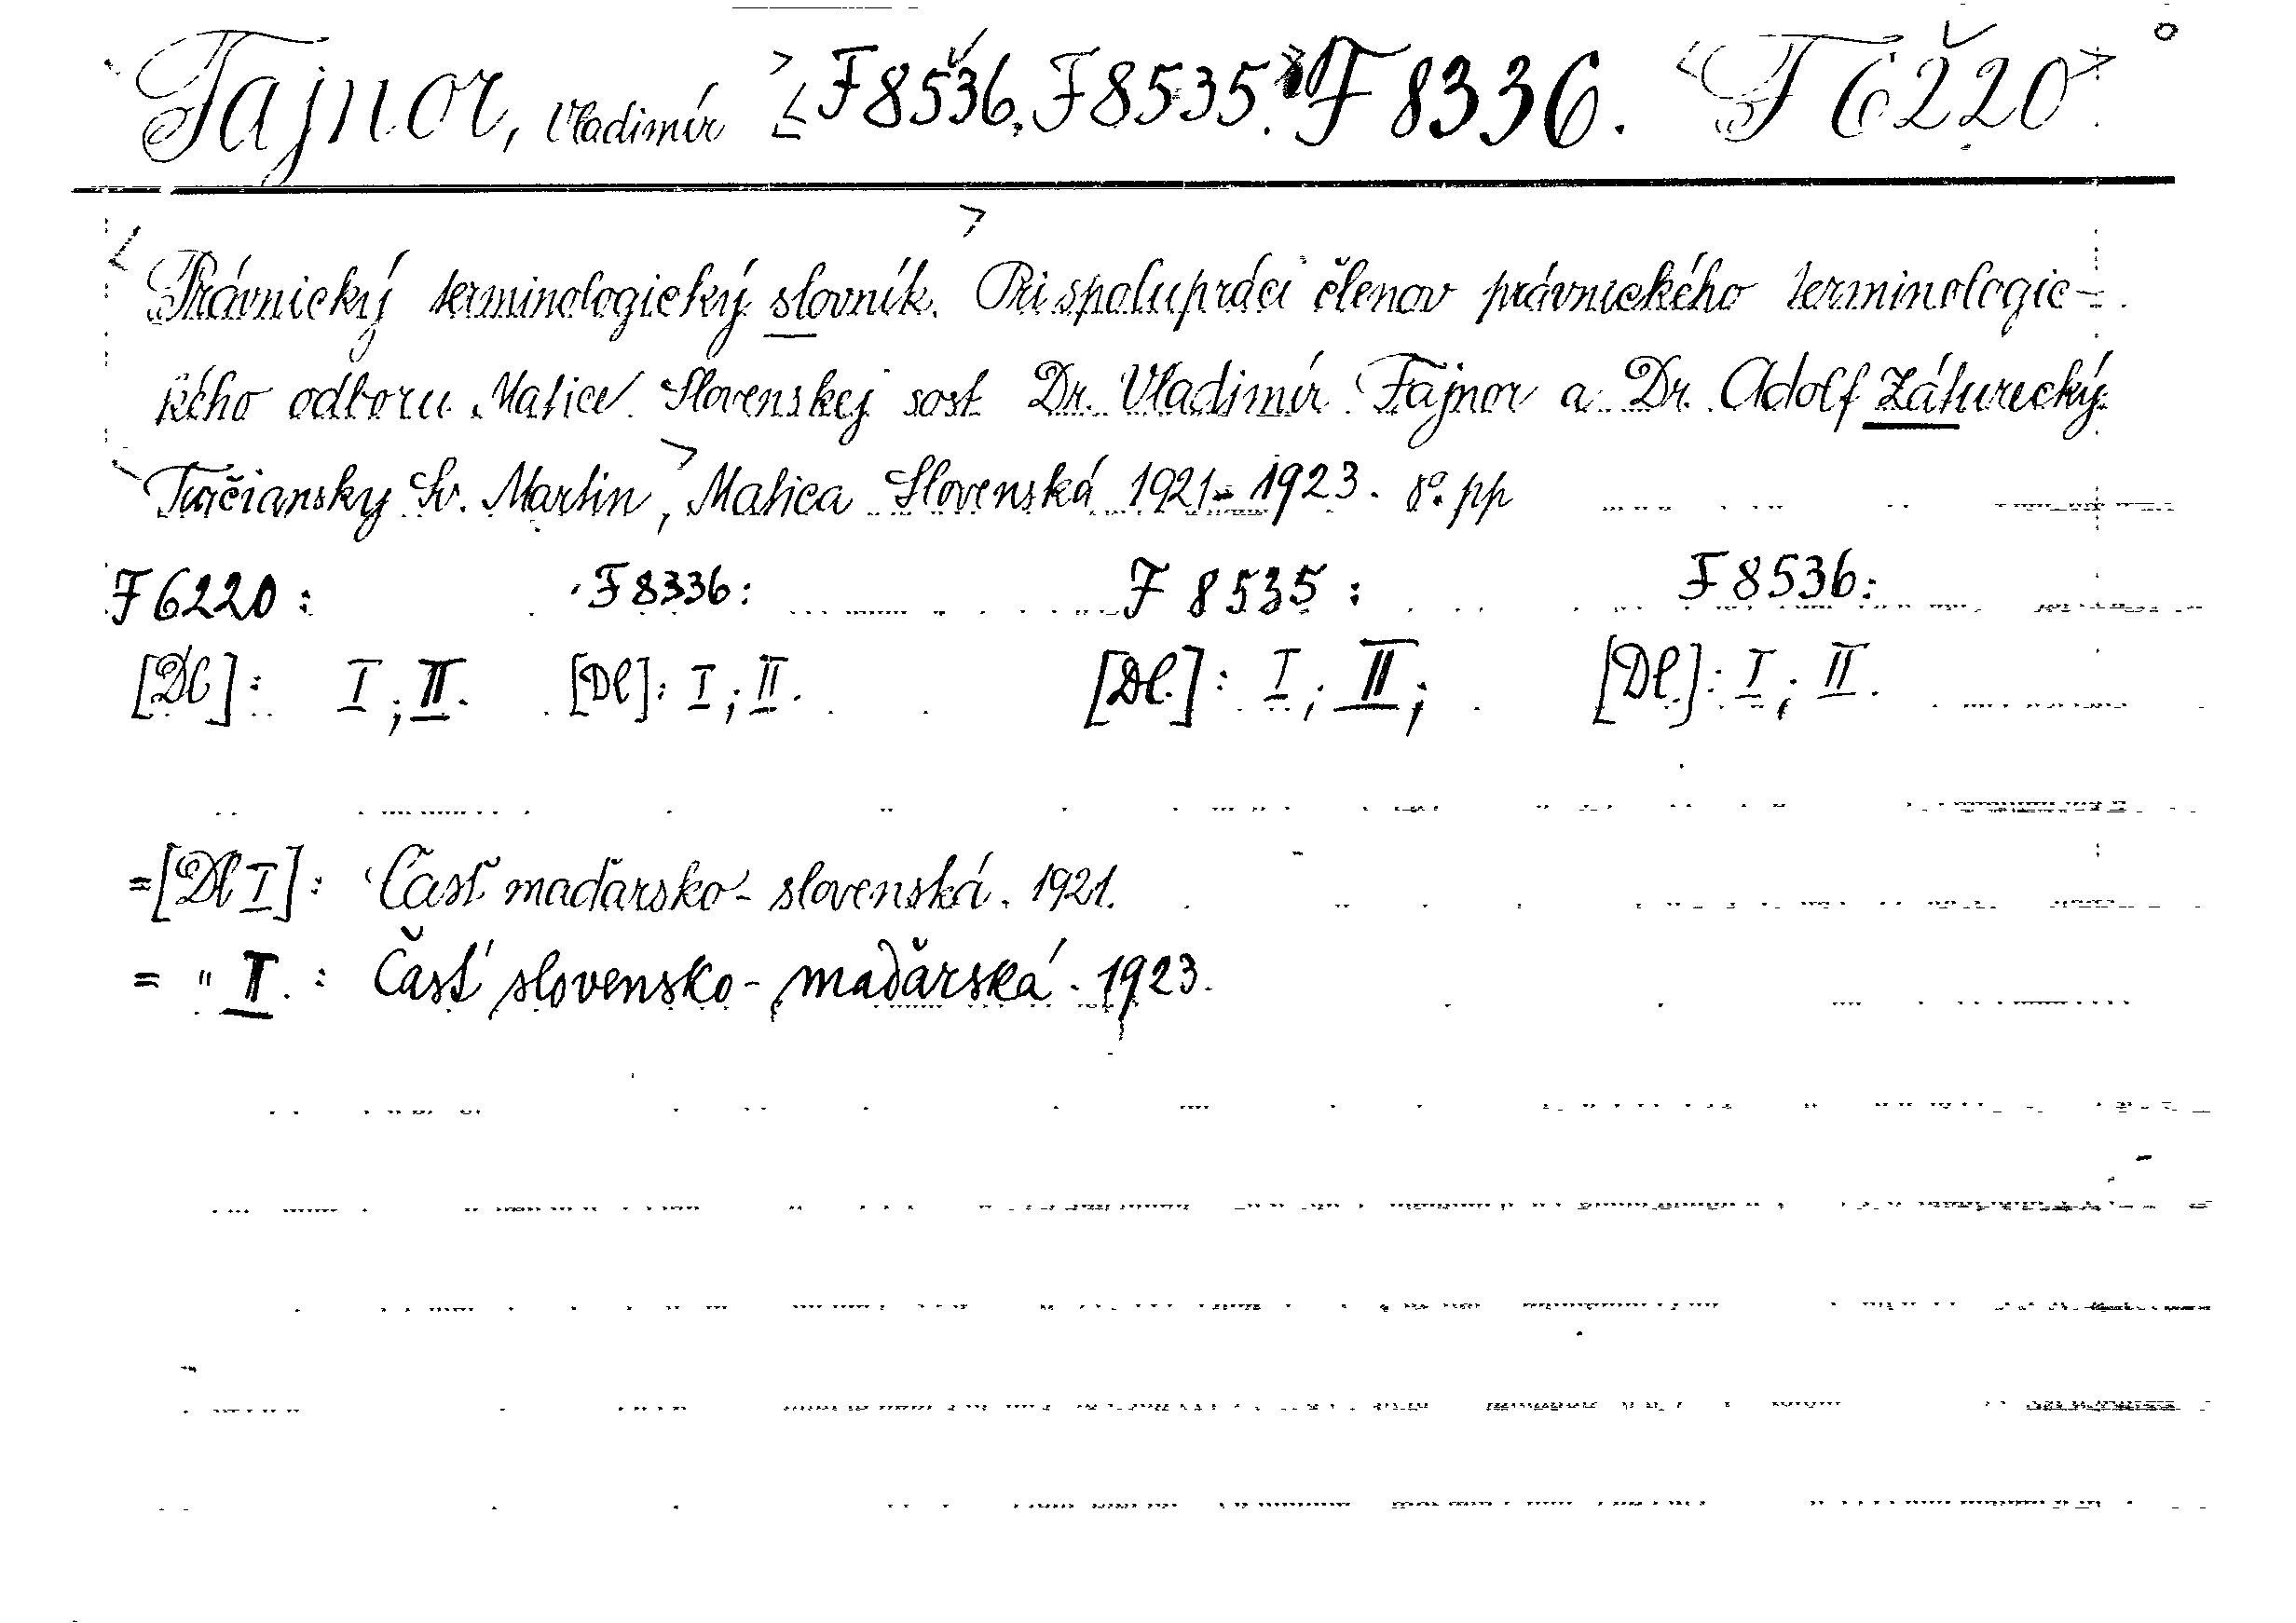 Fajnor, Vladimír F 8536, F 8535. F 8336. F 6220
Právnický terminologický slovník. Pri spolupráci členov právnického terminologic-
kého odboru Matice Slovenskej sost Dr. Vladimír Fajnor a Dr. Adolf Záturecký.
Turčiansky Sv. Martin, Matica Slovenská 1921-1923. 8°. pp
F 6220: F 8336: F 8535: F 8536:
[Dl]: I; II. [Dl]: I; II. [Dl.]: I; II; [Dl.]: I; II.
=[Dl I]: Časť maďarsko-slovenská. 1921.
= " II. : Časť slovensko-maďarská. 1923.